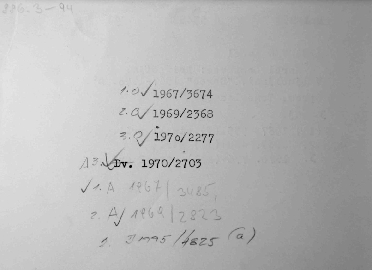 226-3-94
1. a √ 1967/3674
2. a √ 1969/2368
3. a √ 1970/2277
A3. √ Dv. 1970/2703
√ 1. A 1967/3485,
2. A √ 1969/2823
1. 1995/4825 (a)